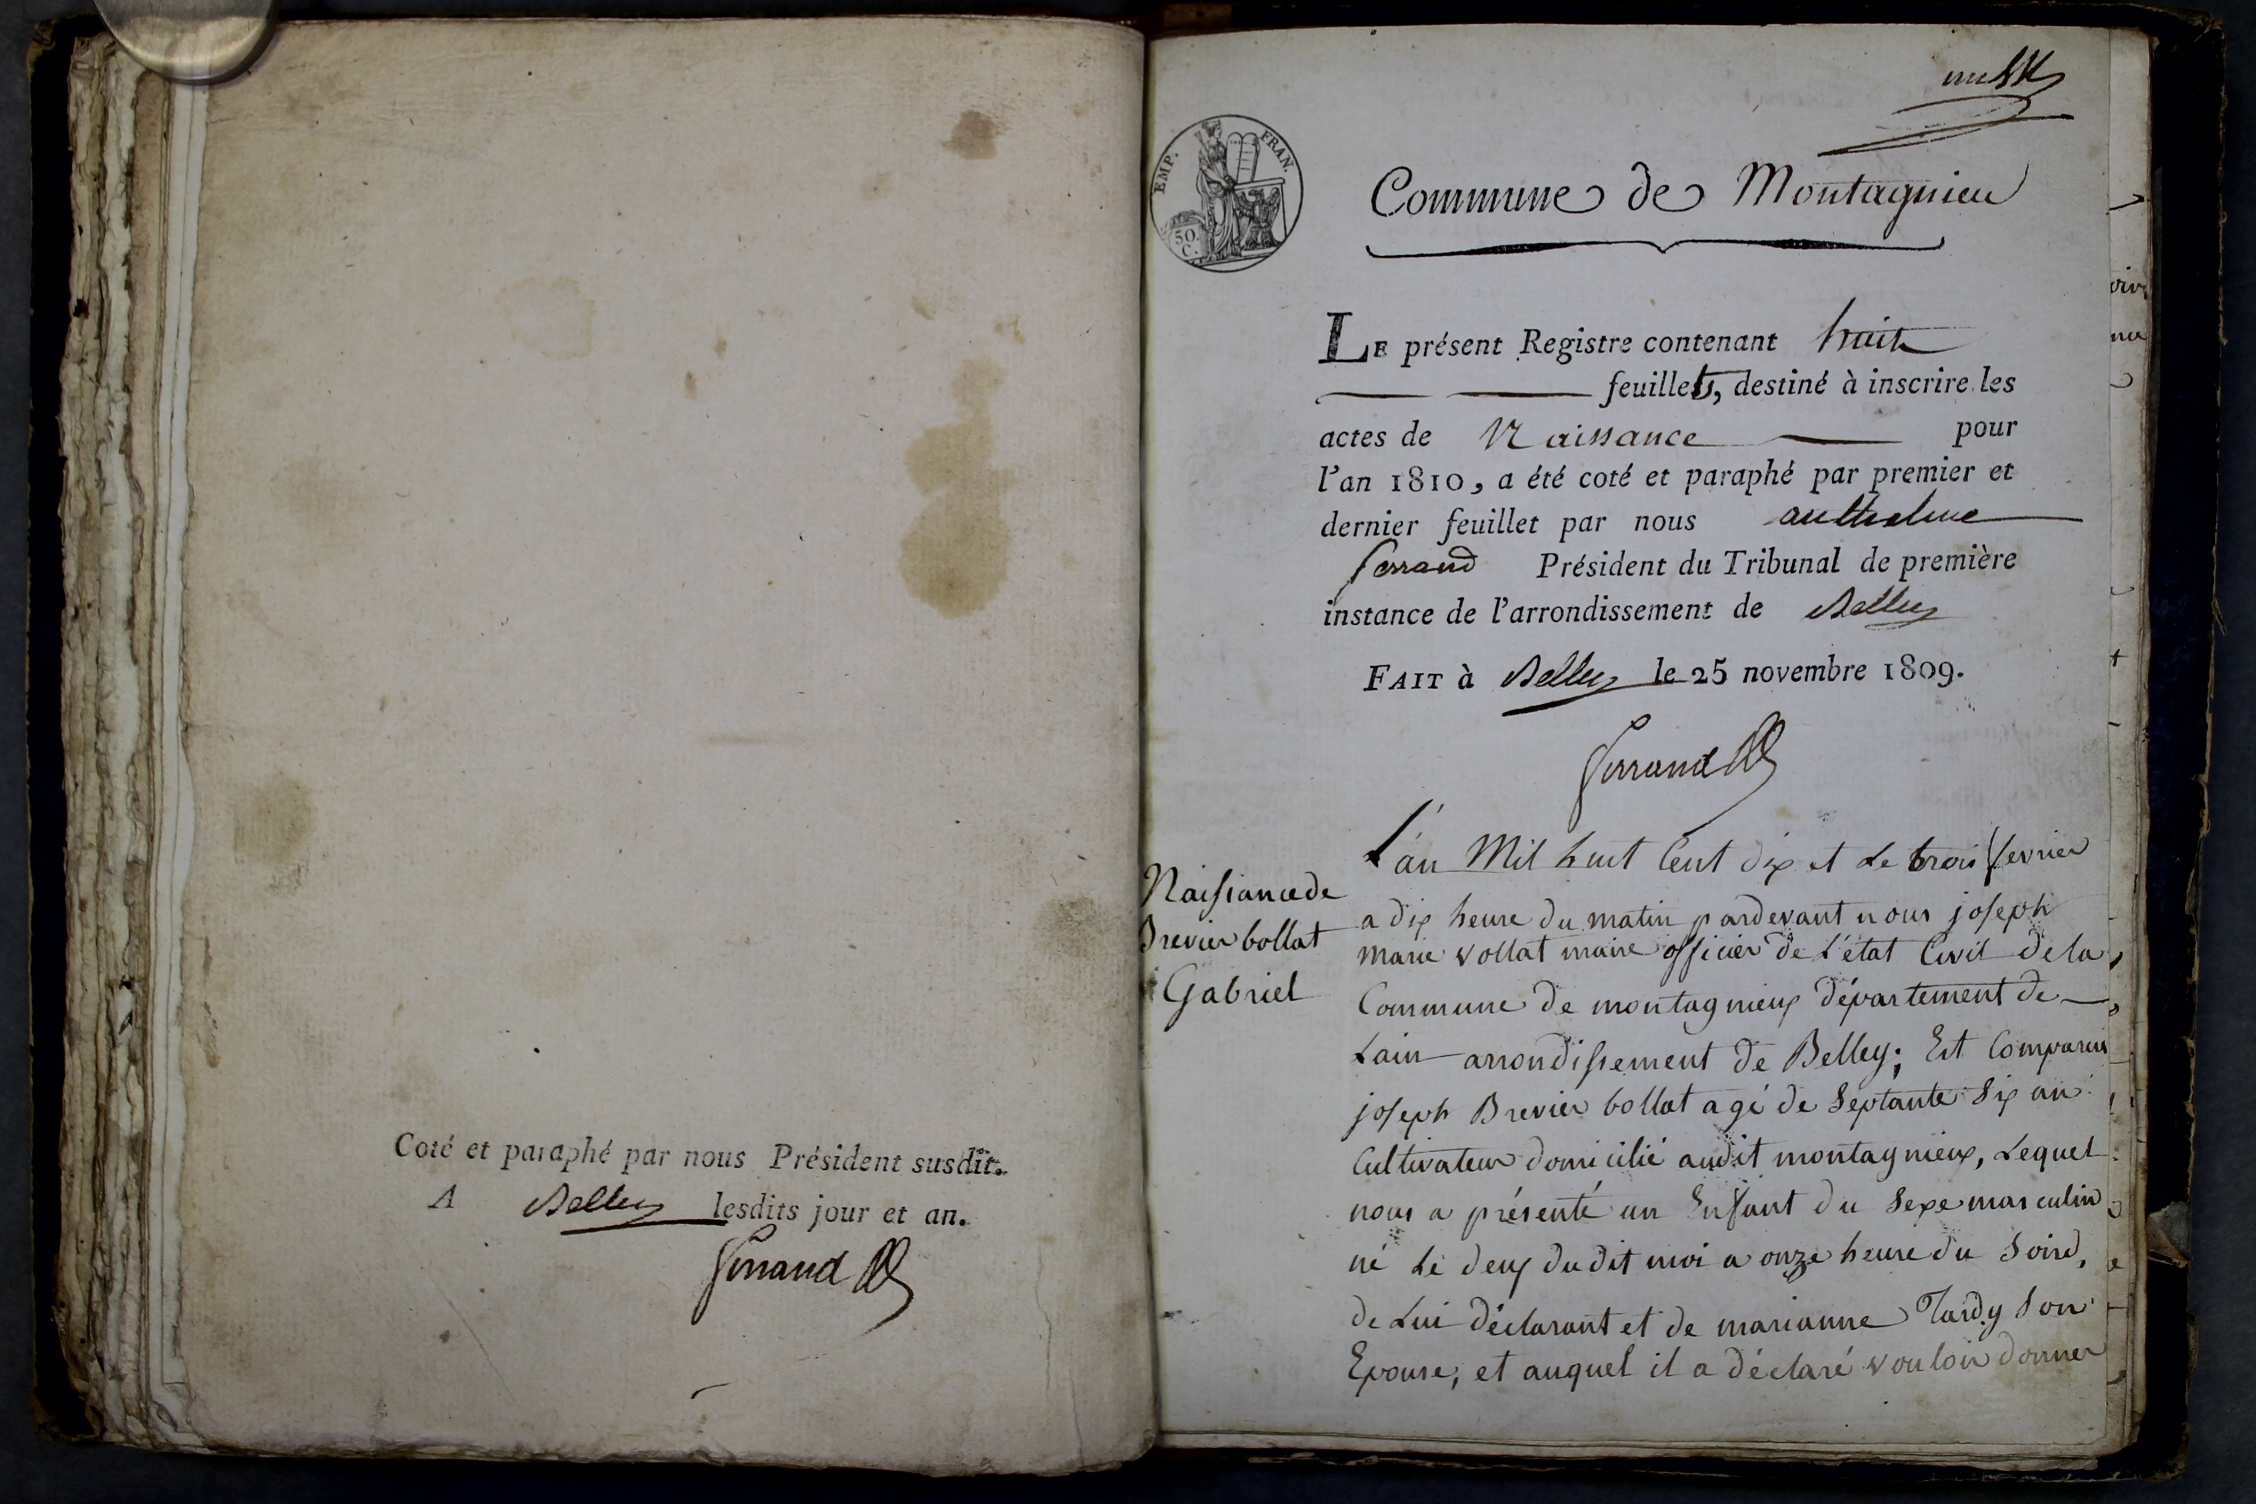 Coté et paraphé par nous Président susdit.
A Belley lesdits jour et an.
Ferrand
EMP. FRAN.
50 C.
Commune de Montagnieu
LE présent Registre contenant huit
feuillets, destiné à inscrire les
actes de Naissance pour
l'an 1810, a été coté et paraphé par premier et
dernier feuillet par nous anthelme
ferrand Président du Tribunal de première
instance de l'arrondissement de Belley
FAIT à Belley le 25 novembre 1809.
Ferrand
Naissance de
Brevier bollat
Gabriel
L'an Mil huit Cent dix et le trois fevrier
a dix heure du matin pardevant nous joseph
marie vollat maire officier de L'état Civil de la
Commune de montagnieux département de
Lain arrondissement de Belley; Est Comparus
joseph Brevier bollat agé de Septante Six an
Cultivateur domicilié audit montagnieux, Lequel
nous a présenté un Enfant du Sexe masculin
né Le deux dudit moi a onze heure du Soird,
de Lui déclarant et de marianne Tardy Son
Epouse, et auquel il a déclaré vouloir donner